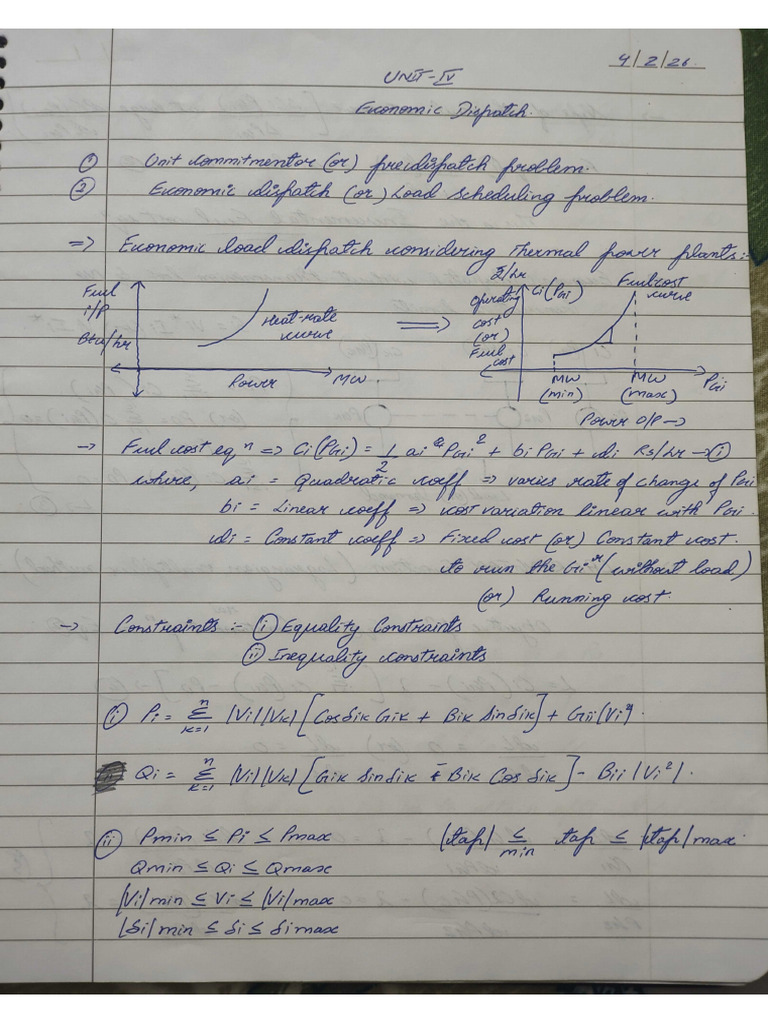 4/2/26
UNIT-IV
Economic Dispatch.
① Unit commitmentor (or) predispatch problem.
② Economic dispatch (or) Load scheduling problem.
=> Economic load dispatch considering Thermal power plants:-
Fuel i/P Btu/hr
Heat-rate curve
Power MW.
=>
₹/hr
Operating cost (or) Fuel cost
Ci(PGi)
Fuel cost curve
MW (min)
MW (max)
PGi
Power O/P →
→ Fuel cost eqn => Ci(PGi) = 1/2 ai PGi² + bi PGi + di Rs/hr → ①
where, ai = Quadratic coeff => varies rate of change of PGi
bi = Linear coeff => cost variation linear with PGi.
di = Constant coeff => Fixed cost (or) Constant cost.
to run the Gi (without load)
(or) Running cost.
→ Constraints :- ⓘ Equality Constraints
ⓘⓘ Inequality constraints
ⓘ Pi = n Σ K=1 |Vi| |VK| [Cos δiK GiK + BiK Sin δiK] + Gii |Vi²|.
Qi = n Σ K=1 |Vi| |VK| [GiK Sin δiK - BiK Cos δiK] - Bii |Vi²|.
ⓘⓘ Pmin ≤ Pi ≤ Pmax |tap| min ≤ tap ≤ |tap| max.
Qmin ≤ Qi ≤ Qmax
|Vi| min ≤ Vi ≤ |Vi| max
|δi| min ≤ δi ≤ δi max